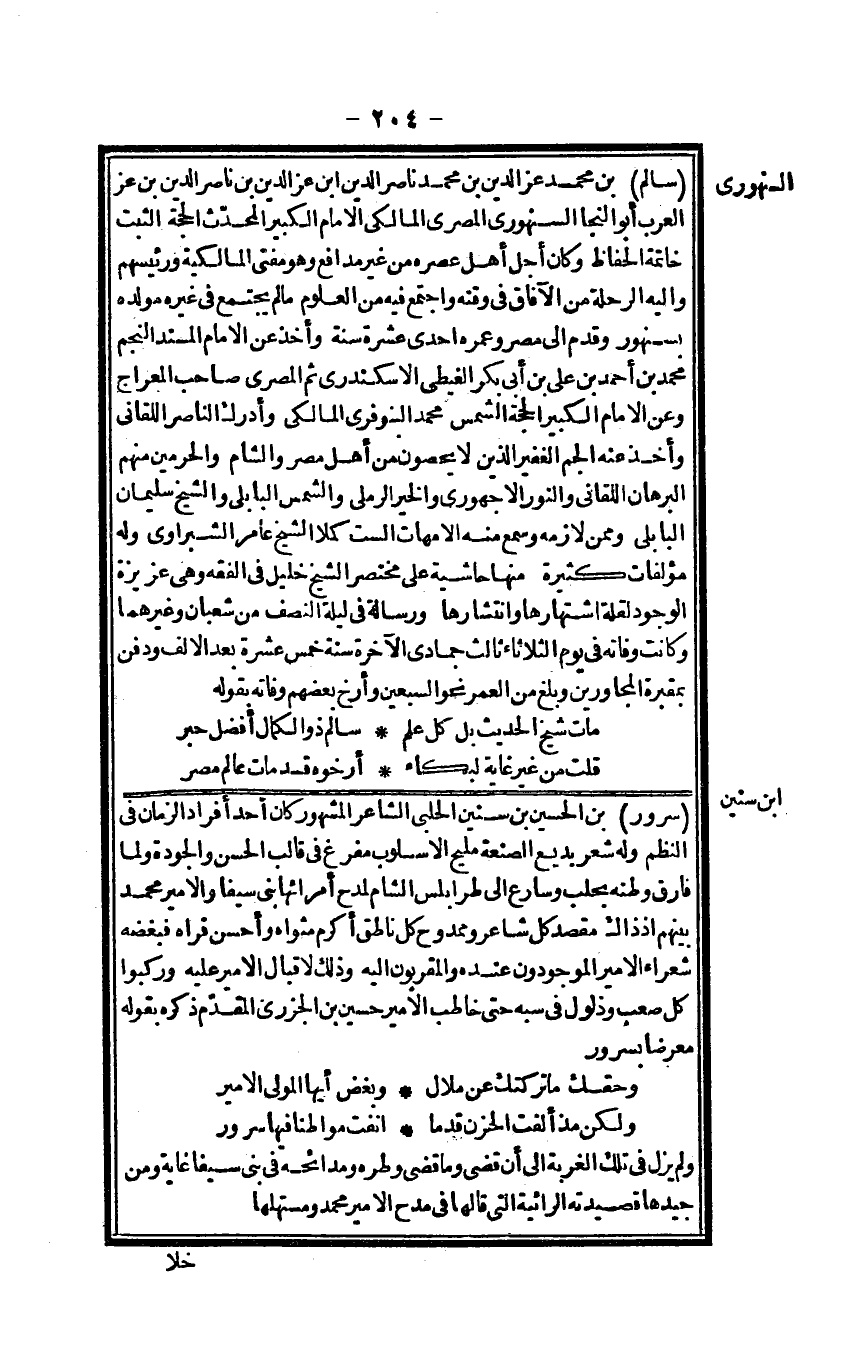 – ٢٠٤ –
السنهورى
(سالم) بن محمد عز الدين بن محمد ناصر الدين ابن عز الدين بن ناصر الدين بن عز
العرب أبو النجا السنهورى المصرى المالكى الامام الكبير المحدّث الحجة الثبت
خاتمة الحفاظ وكان أجل أهل عصره من غير مدافع وهو مفتى المالكية ورئيسهم
واليه الرحلة من الآفاق فى وقته واجتمع فيه من العلوم مالم يجتمع فى غيره مولده
بسنهور وقدم الى مصر وعمره احدى عشرة سنة وأخذ عن الامام المسند النجم
محمد بن أحمد بن على بن أبى بكر الغيطى الاسكندرى ثم المصرى صاحب المعراج
وعن الامام الكبير الحجة الشمس محمد البنوفرى المالكى وأدرك الناصر اللقانى
وأخذ عنه الجم الغفير الذين لا يحصون من أهل مصر والشام والحرمين منهم
البرهان اللقانى والنور الاجهورى والخير الرملى والشمس البابلى والشيخ سليمان
البابلى وممن لازمه وسمع منه الامهات الست كملا الشيخ عامر الشبراوى وله
مؤلفات كثيرة منها حاشية على مختصر الشيخ خليل فى الفقه وهى عزيزة
الوجود لقلة اشتهارها وانتشارها ورسالة فى ليلة النصف من شعبان وغيرهما
وكانت وفاته فى يوم الثلاثاء ثالث جمادى الآخرة سنة خمس عشرة بعد الالف ودفن
بمقبرة المجاورين وبلغ من العمر نحو السبعين وأرخ بعضهم وفاته بقوله
مات شيخ الحديث بل كل علم * سالم ذو الكمال أفضل حبر
قلت من غير غاية لبكاء * أرخوه قد مات عالم مصر
ابن سنين
(سرور) بن الحسين بن سنين الحلبى الشاعر المشهور كان أحد أفراد الزمان فى
النظم وله شعر بديع الصنعة مليح الاسلوب مفرغ فى قالب الحسن والجودة ولما
فارق وطنه بحلب وسارع الى طرابلس الشام لمدح أمرائها بنى سيفا والامير محمد
بينهم اذذاك مقصد كل شاعر وممدوح كل ناطق أكرم مثواه وأحسن قراه فبغضه
شعراء الامير الموجودون عنده والمقربون اليه وذلك لاقبال الامير عليه وركبوا
كل صعب وذلول فى سبه حتى خاطب الامير حسين بن الجزرى المقدّم ذكره بقوله
معرضا بسرور
وحقك ما تركتك عن ملال * وبغض أيها المولى الامير
ولكن مذ ألفت الحزن قدما * انفت مواطنا فيها سرور
ولم يزل فى تلك الغربة الى أن قضى وما قضى وطره ومدائحه فى بنى سيفا غاية ومن
جيدها قصيدته الرائية التى قالها فى مدح الامير محمد ومستهلها
خلا